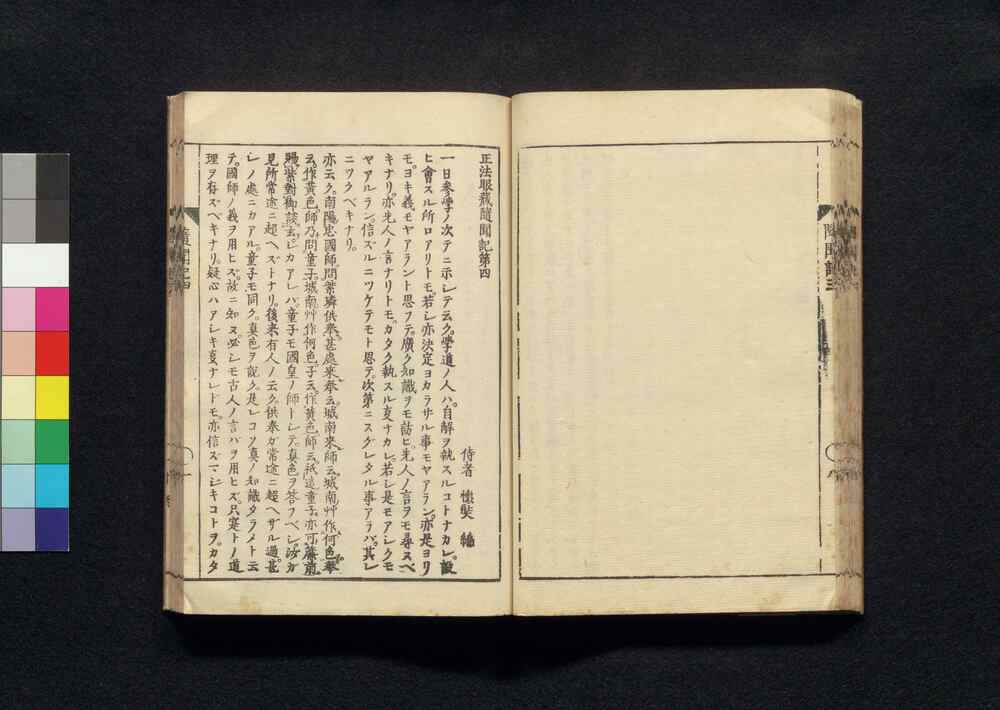 正法眼蔵隨聞記第四
侍者 懷奘 編
一日參學ノ次テニ示シテ云ク。學道ノ人ハ。自解ヲ執スルコトナカレ。設
ヒ會スル所ロアリトモ。若シ亦決定ヨカラサル事モヤアラン。亦是ヨリ
モ。ヨキ義モヤアラント思フテ。廣ク知識ヲモ訪ヒ。先人ノ言ヲモ尋スベ
キナリ。亦先人ノ言ナリトモ。カタク執スル事ナカレ。若シ是モアシクモ
ヤアルラン。信ズルニツケテモト思テ。次第ニスグレタル事アラバ。其レ
ニツクベキナリ。
亦云ク。南陽忠國師。問紫璘供奉。甚處來。奉云。城南來。師云。城南艸作何色。奉
云。作黃色。師乃問童子。城南艸作何色。子云。作黃色。師云。祇這童子。亦可簾前
賜紫對御談玄。シカアレバ。童子モ國皇ノ師トシテ。真色ヲ答フベシ。汝ガ
見所常途ニ超ヘズトナリ。後來有人ノ云ク。供奉ガ常途ニ超ヘザル過。甚
レノ處ニカアル。童子モ同ク。真色ヲ說ク。是レコソ真ノ知識タラメト云
テ。國師ノ義ヲ用ヒズ。故ニ知ヌ。必シモ古人ノ言バヲ用ヒズ。只寔トノ道
理ヲ存ズベキナリ。疑心ハアシキ事ナレドモ。亦信ズマジキコトヲ。カタ
隨聞記四
隨聞記三